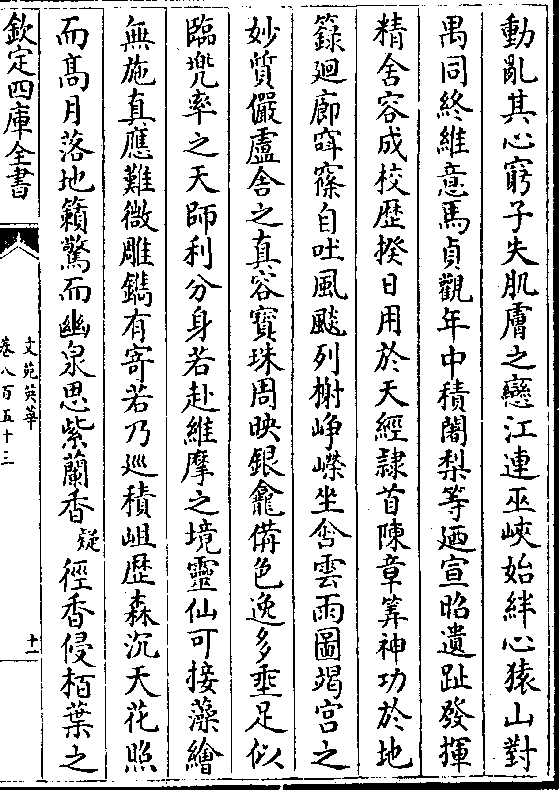 動亂其心窮子失肌膚之戀江連巫峽始絆心猿山對
禺同終維意馬貞觀年中積闍梨等廼宣昭遺趾發揮
精舍容成校歴揆日用於天經隷首陳章筭神功於地
籙廻廊窲自吐風飈列榭崢嶸坐含雲雨圖竭宮之
妙質儼盧舍之真容寳珠周映銀龕備色逸多垂足似
臨兜率之天師利分身若赴維摩之境靈仙可接藻繪
無施真應難微雕鐫有寄若乃巡積岨歴森沉天花照
而髙月落地籟驚而幽泉思紫蘭香疑徑香侵栢葉之
欽定四庫全書
文苑英華
卷八百五十三
十一